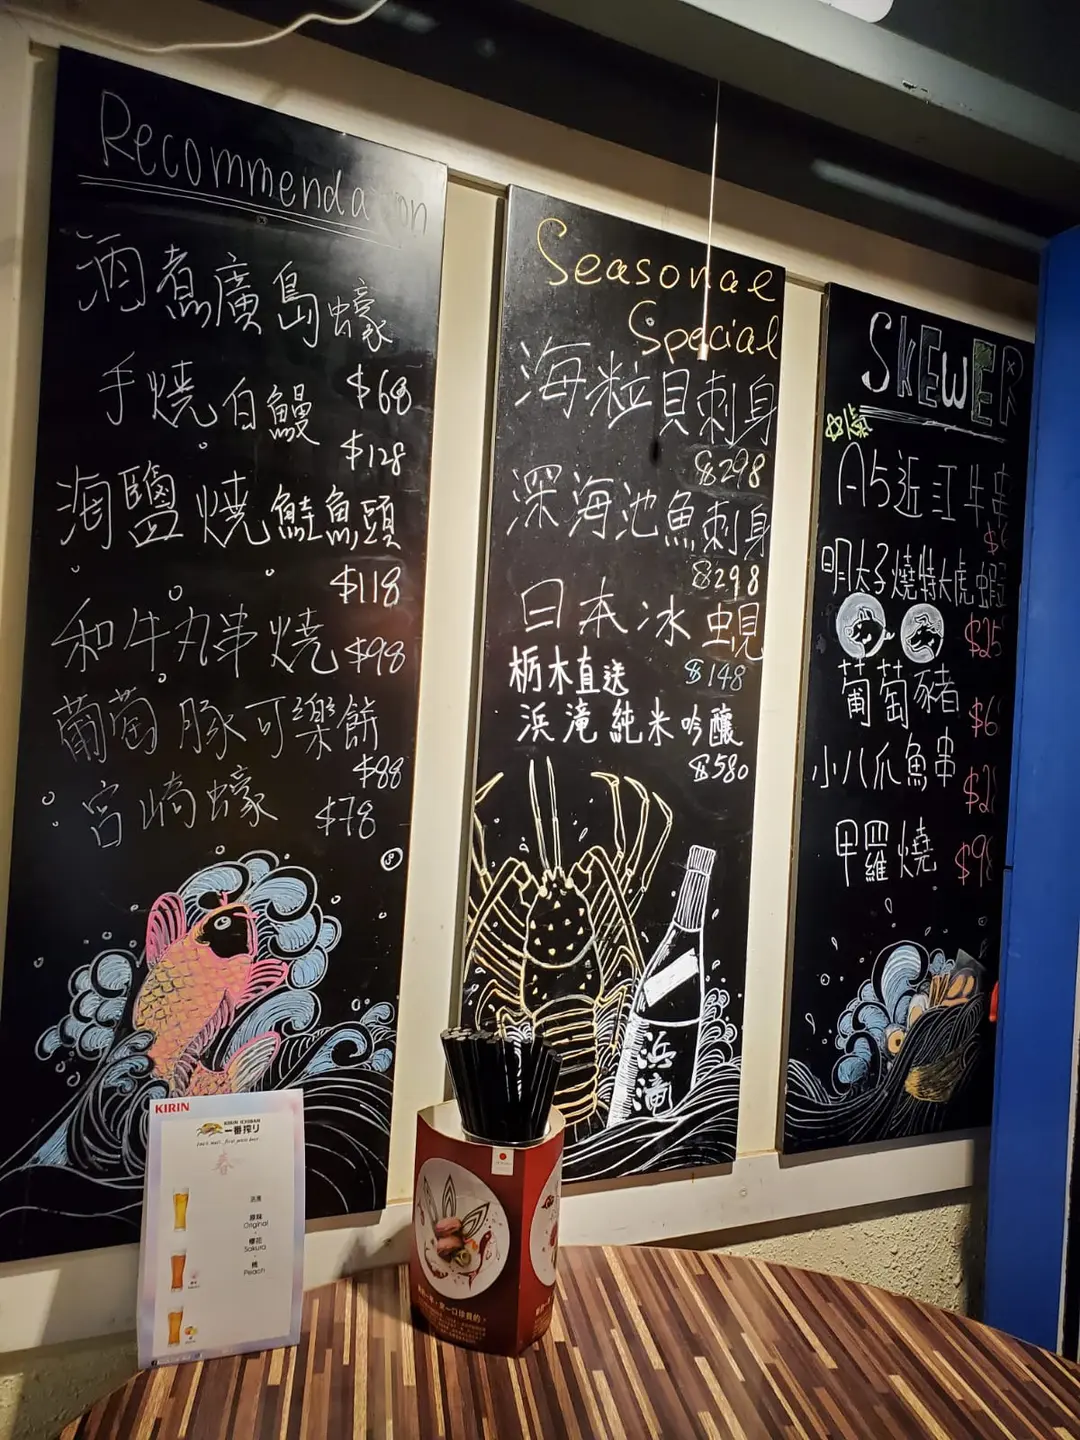 Recommendation
酒煮廣島蠔
$68
手燒白鱔
$128
海鹽燒鮭魚頭
$118
和牛丸串燒 $98
葡萄豚可樂餅
$88
宮崎蠔 $78
Seasonal
Special
海粒貝刺身
$298
深海池魚刺身
$298
日本冰蜆
$148
栃木直送
浜滝純米吟釀
$580
浜滝
SKEWER
A5近江牛串
明太子燒特大虎蝦
$25
葡萄豬
$6
小八爪魚串
$2
甲羅燒
$9
KIRIN
KIRIN ICHIBAN
一番搾り
春
原味
Original
櫻花
Sakura
桃
Peach